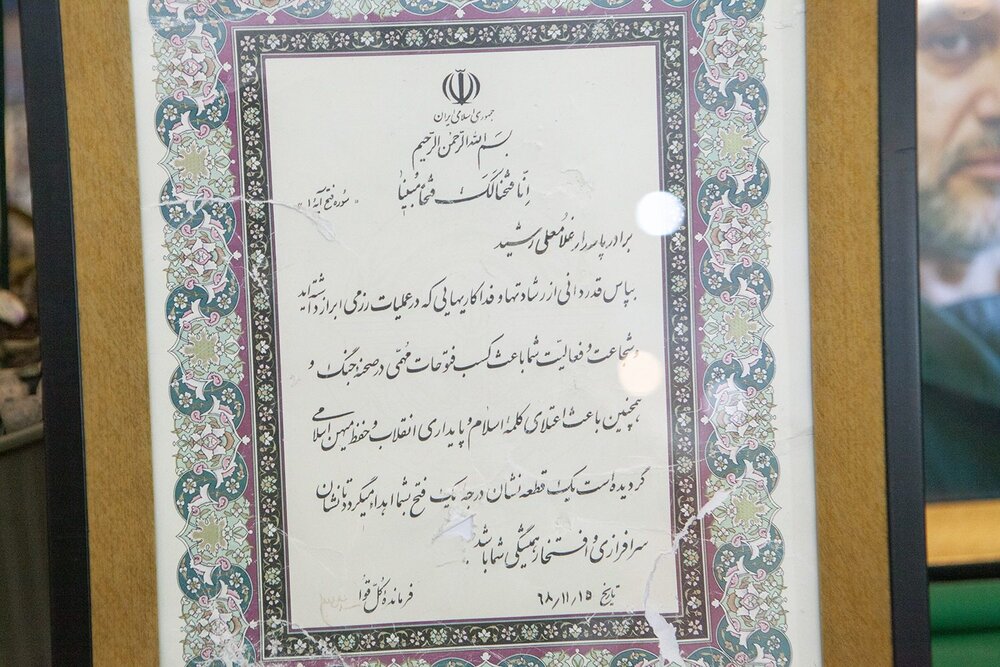 جمهوری اسلامی ایران
بسم الله الرحمن الرحیم
انا فتحنا لک فتحا مبینا «سوره فتح آیه ۱»
برادر پاسدار غلامعلی رشید
بپاس قدردانی از رشادتها و فداکاریهایی که در عملیات رزمی ابراز داشته‌اید
و شجاعت و فعالیت شما باعث کسب فتوحات مهمی در صحنه جنگ و
همچنین باعث اعتلای کلمه اسلام و پایداری انقلاب و حفظ میهن اسلامی
گردیده است یک قطعه نشان درجه یک فتح بشما اهداء میگردد تا نشان
سرافرازی و افتخار همیشگی شما باشد.
تاریخ ۶۸/۱۱/۱۵ فرمانده کل قوا